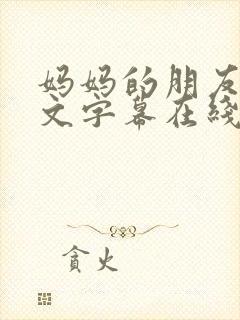 妈妈的朋友
文字幕在线
贪火